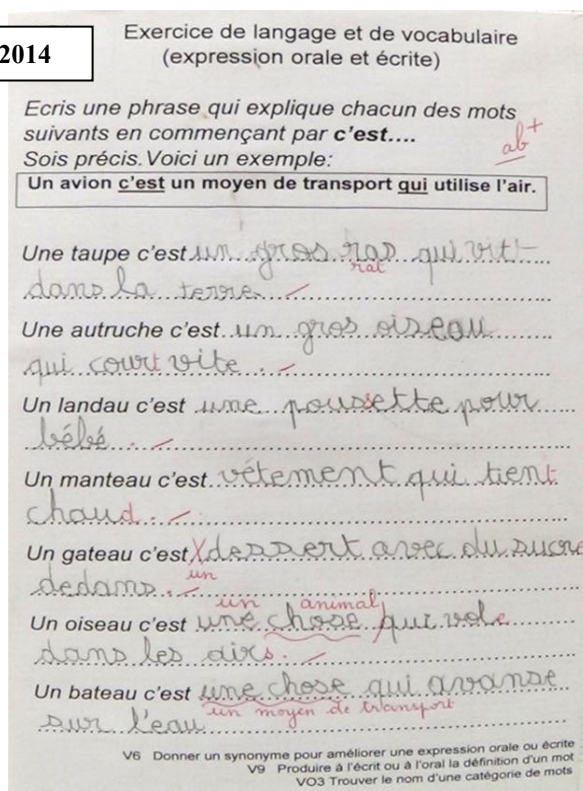 2014
Exercice de langage et de vocabulaire
(expression orale et écrite)
Ecris une phrase qui explique chacun des mots
suivants en commençant par c'est....
Sois précis. Voici un exemple:
ab+
Un avion c'est un moyen de transport qui utilise l'air.
Une taupe c'est un gros rap qui vit
rat
dans la terre
Une autruche c'est un gros oiseau
qui court vite.
Un landau c'est une poussette pour
bébé.
Un manteau c'est vêtement qui tient
chaud.
Un gateau c'est dessert avec du sucre
un
dedans.
un animal
Un oiseau c'est une chose qui vole
dans les airs.
Un bateau c'est une chose qui avanse
un moyen de transport
sur l'eau
V6 Donner un synonyme pour améliorer une expression orale ou écrite
V9 Produire à l'écrit ou à l'oral la définition d'un mot
VO3 Trouver le nom d'une catégorie de mots